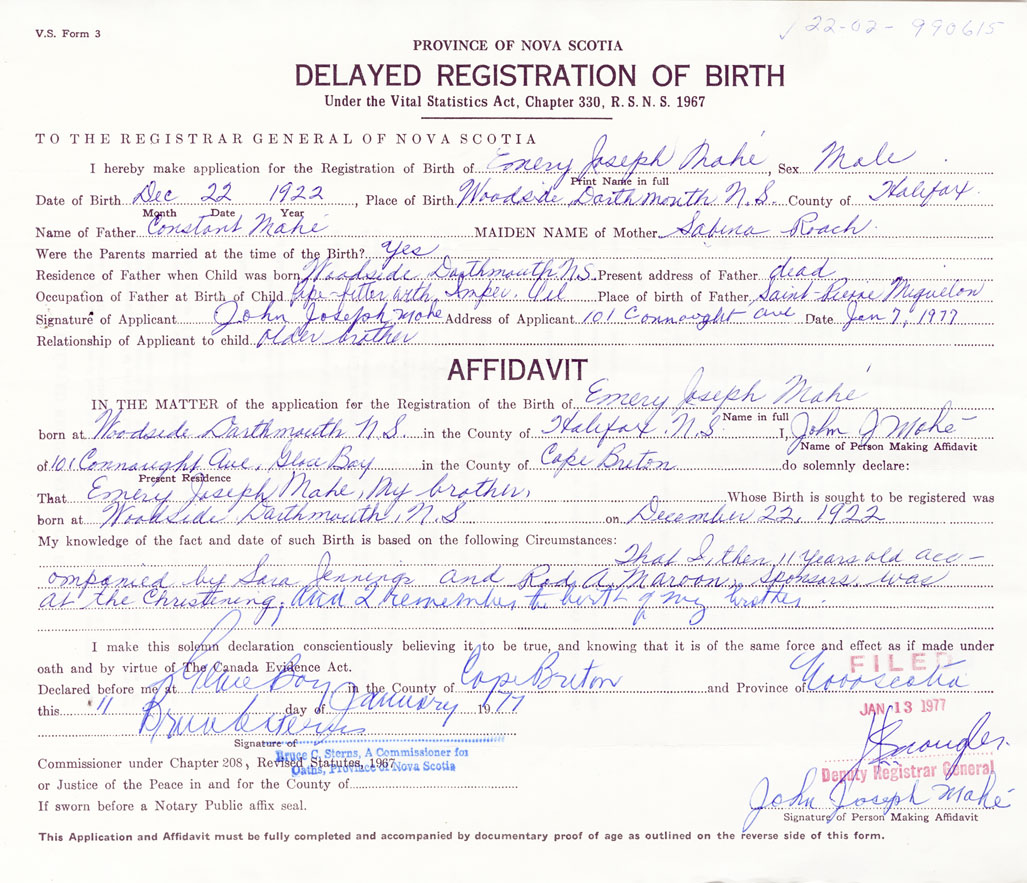 V.S. Form 3
22-02-990615
PROVINCE OF NOVA SCOTIA
DELAYED REGISTRATION OF BIRTH
Under the Vital Statistics Act, Chapter 330, R.S.N.S. 1967
TO THE REGISTRAR GENERAL OF NOVA SCOTIA
I hereby make application for the Registration of Birth of Emery Joseph Mahé, Sex Male
Print Name in full
Date of Birth Dec 22 1922, Place of Birth Woodside Dartmouth N.S. County of Halifax.
Month Date Year
Name of Father Constant Mahé MAIDEN NAME of Mother Sabina Roach
Were the Parents married at the time of the Birth? Yes
Residence of Father when Child was born Woodside Dartmouth N.S. Present address of Father dead
Occupation of Father at Birth of Child Pipe-fitter with Imper. Oil Place of birth of Father Saint-Pierre Miquelon
Signature of Applicant John Joseph Mahe Address of Applicant 101 Connaught Ave Date Jan 7, 1977
Relationship of Applicant to child older brother
AFFIDAVIT
IN THE MATTER of the application for the Registration of the Birth of Emery Joseph Mahé
Name in full
born at Woodside Dartmouth N.S. in the County of Halifax N.S. I, John J Mahé
Name of Person Making Affidavit
of 101 Connaught Ave, Glace Bay in the County of Cape Breton do solemnly declare:
Present Residence
That Emery Joseph Mahe, My brother, Whose Birth is sought to be registered was
born at Woodside Dartmouth, N.S on December 22, 1922
My knowledge of the fact and date of such Birth is based on the following Circumstances:
That I, then 11 years old acc-
ompanied by Sara Jennings and Rod A. Maroon, sponsors, was
at the Christening, and I remember the birth of my brother.
I make this solemn declaration conscientiously believing it to be true, and knowing that it is of the same force and effect as if made under
oath and by virtue of The Canada Evidence Act.
FILED
Declared before me at Glace Bay in the County of Cape Breton and Province of Nova Scotia
this 11 day of January 1977
JAN 13 1977
Signature of
Bruce C. Sterns, A Commissioner for
Oaths, Province of Nova Scotia
Commissioner under Chapter 208, Revised Statutes, 1967
Deputy Registrar General
or Justice of the Peace in and for the County of
John Joseph Mahé
If sworn before a Notary Public affix seal.
Signature of Person Making Affidavit
This Application and Affidavit must be fully completed and accompanied by documentary proof of age as outlined on the reverse side of this form.